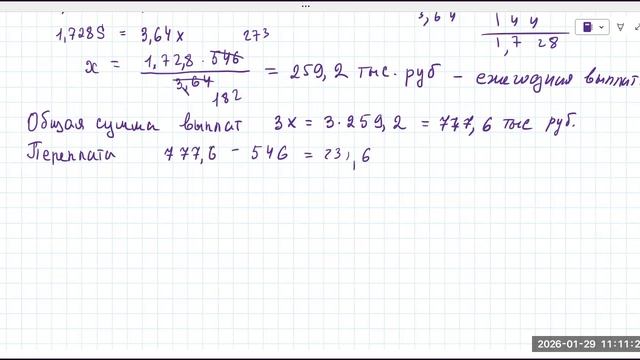 3,64
144
1,728
1,728S = 3,64x
273
x = 1,72,8 · 546 / 3,64 = 259,2 тыс. руб - ежегодная выплат
182
Общая сумма выплат 3x = 3·259,2 = 777,6 тыс руб.
Переплата 777,6 - 546 = 231,6
2026-01-29 11:11:2